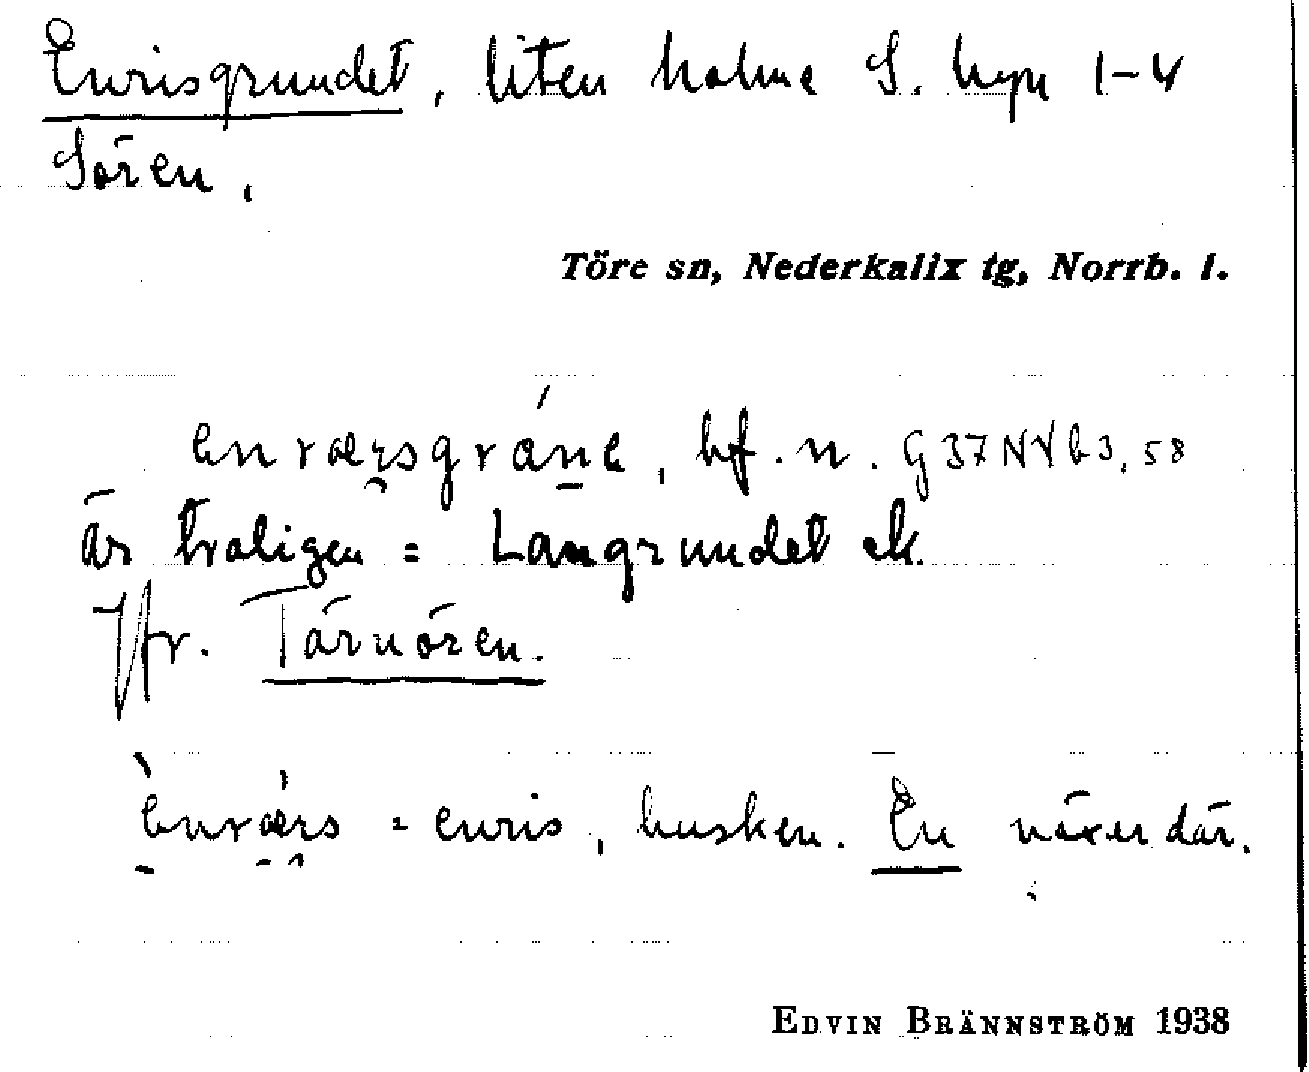 Enrisgrundet, liten holme S. hyn 1-4
Sören.
Töre sn, Nederkalix tg, Norrb. l.
enværsgráne, bf. n. G37NYb3,58
är troligen = Långrundet ek.
Jfr. Tärnören.
ènværs = enris, busken. En växer där.
EDVIN BRÄNNSTRÖM 1938